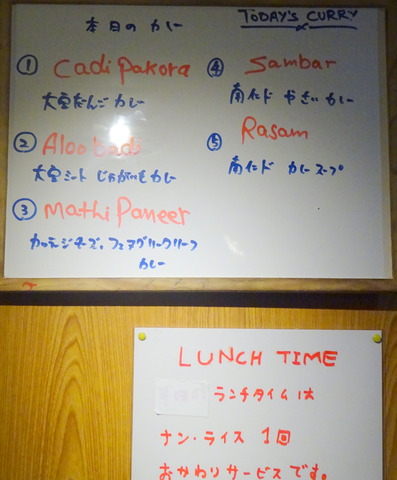 本日のカレー
TODAY'S CURRY
① Cadi Pakora
大豆だんごカレー
② Aloo Badi
大豆ミート じゃがいもカレー
③ Mathi Paneer
カッテジチーズ、フェヌグリークリーフ
カレー
④ Sambar
南インド やさいカレー
⑤ Rasam
南インド カレースープ
LUNCH TIME
ランチタイムは
ナン・ライス 1回
おかわりサービスです。